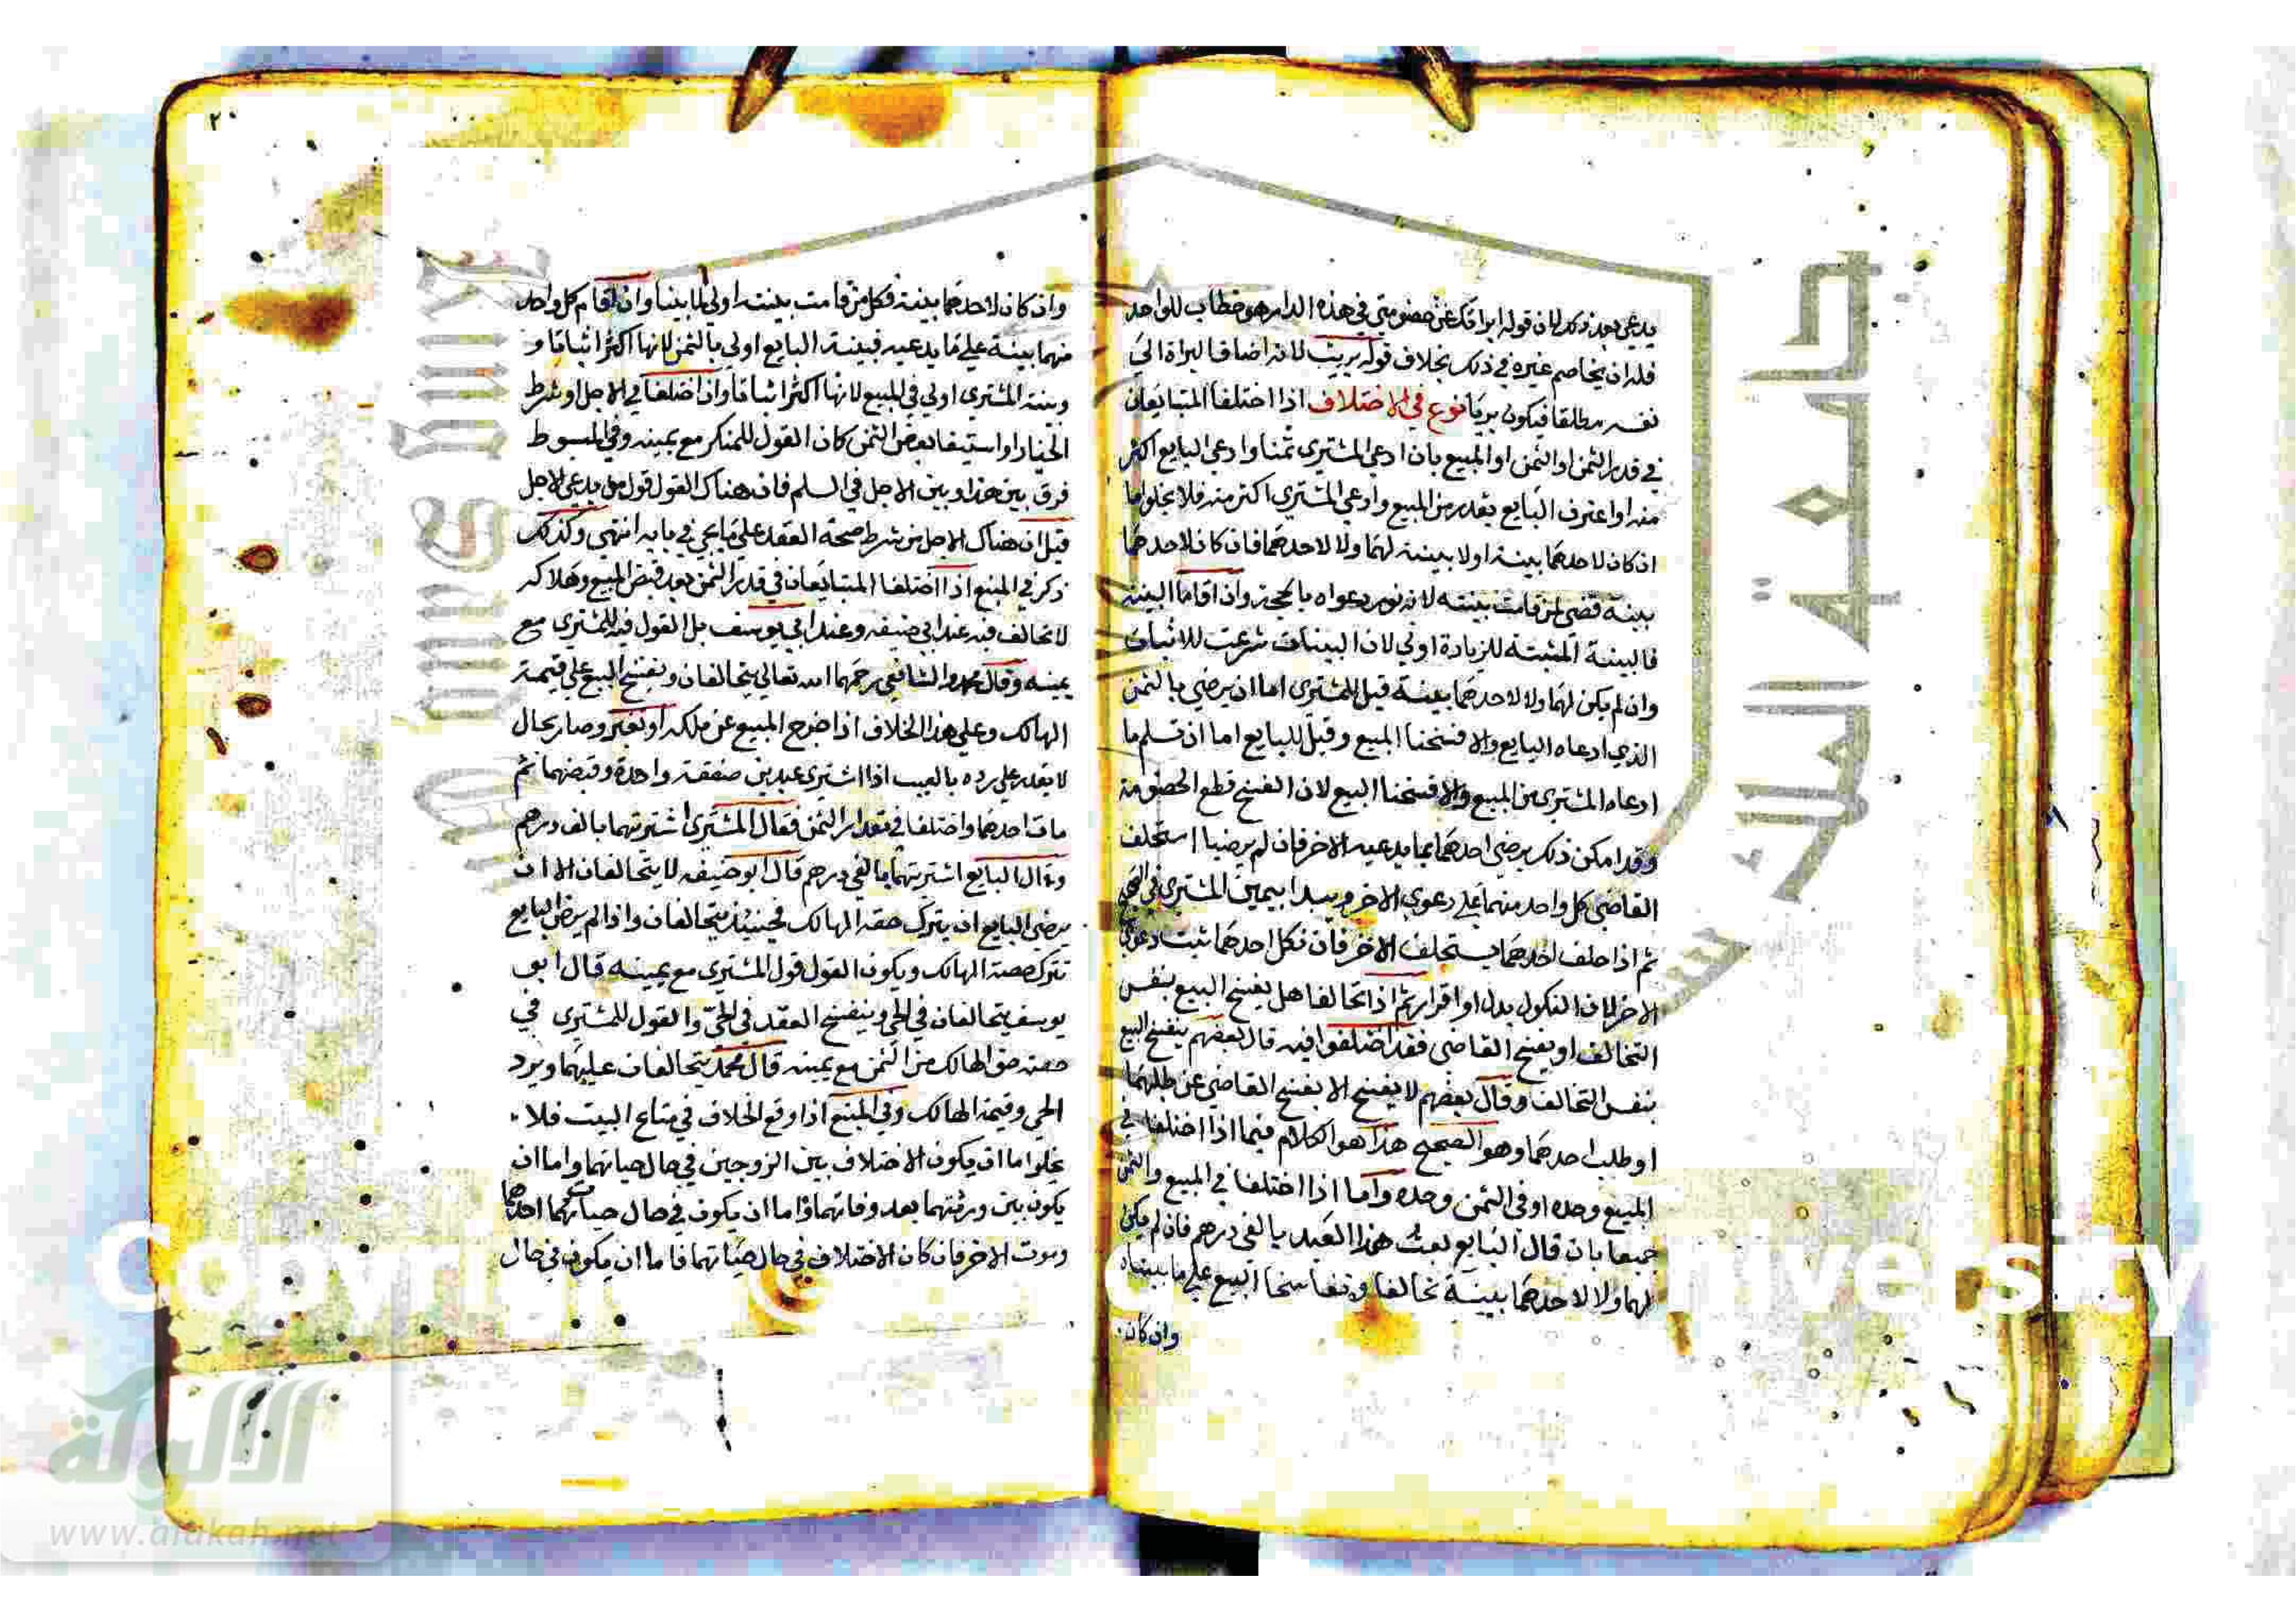 يدعي بعد ذلك لان قوله ابراتك عن خصومتي في هذه الدار هو خطاب للواحد
فله ان يخاصم غيره في ذلك بخلاف قوله بريت لانه اضاف البراة الي
نفسه مطلقا فيكون بريا نوع في الاختلاف اذا اختلفا المتبايعان
في قدر الثمن او الثمن او المبيع بان ادعي المشتري ثمنا وادعي البايع اكثر
منه او اعترف البايع بقدر من المبيع وادعي المشتري اكثر منه فلا يخلو اما
ان كان لاحدهما بينة او لا بينة لهما ولا لاحدهما فان كان لاحدهما
بينة قضي لمن قامت بينته لانه نور دعواه بالحجة وان اقاما البينة
فالبينة المثبتة للزيادة اولي لان البينات شرعت للاثبات
وان لم يكن لهما ولا لاحدهما بينة قيل للمشتري اما ان يرضي بالثمن
الذي ادعاه البايع والا فسخنا المبيع وقيل للبايع اما ان تسلم ما
ادعاه المشتري من المبيع والا فسخنا البيع لان الفسخ قطع الخصومة
وقد امكن ذلك برضي احدهما بما يدعيه الاخر فان لم يرضيا استحلف
القاضي كل واحد منهما علي دعوي الاخر ويبدا بيمين المشتري في الصحيح
ثم اذا حلف احدهما يستحلف الاخر فان نكل احدهما ثبت دعوي
الاخر لان النكول بدل او اقرار ثم اذا تحالفا هل يفسخ البيع بنفس
التحالف او يفسخ القاضي فقد اختلفوا فيه قال بعضهم ينفسخ البيع
بنفس التحالف وقال بعضهم لا يفسخ الا بفسخ القاضي عن طلبهما
او طلب احدهما وهو الصحيح هذا هو الكلام فيما اذا اختلفا في
المبيع وحده او في الثمن وحده واما اذا اختلفا في المبيع والثمن
جميعا بان قال البايع بعت هذا العبد بالفي درهم فان لم يكن
لهما ولا لاحدهما بينة تحالفا وتفاسخا البيع علي ما بيناه
وان كان
٢٠
وان كان لاحدهما بينة فكل من قامت بينته اولي لما بينا وان اقام كل واحد
منهما بينة علي ما يدعيه فبينة البايع اولي بالثمن لانها اكثر اثباتا و
وبينة المشتري اولي في المبيع لانها اكثر اثباتا وان اختلفا في الاجل او شرط
الخيار او استيفا بعض الثمن كان القول للمنكر مع يمينه وفي المبسوط
فرق بين هذا وبين الاجل في السلم فان هناك القول قول من يدعي الاجل
قيل ان هناك الاجل من شرط صحة العقد علي ما يجي في بابه انتهي وكذلك
ذكر في المنبع اذا اختلفا المتبايعان في قدر الثمن بعد قبض المبيع وهلاكه
لا تحالف فيه عند ابي حنيفه وعند ابي يوسف بل القول فيه للمشتري مع
يمينه وقال محمد والشافعي رحمهما الله تعالي يتحالفان ويفسخ البيع علي قيمة
الهالك وعلي هذا الخلاف اذا خرج المبيع عن ملكه او تغير وصار بحال
لا يقدر علي رده بالعيب اذا اشتري عبدين صفقة واحدة وقبضهما ثم
مات احدهما واختلفا في مقدار الثمن فقال المشتري اشتريتهما بالف درهم
وقال البايع اشتريتهما بالفي درهم قال ابو حنيفه لا يتحالفان الا ان
يرضي البايع ان يترك حقه الهالك فحينيذ يتحالفان واذا لم يرض البايع
بترك حصة الهالك ويكون القول قول المشتري مع يمينه قال ابو
يوسف يتحالفان في الحي وينفسخ العقد في الحي والقول للمشتري في
حصة حق الهالك من الثمن مع يمينه قال محمد يتحالفان عليهما ويرد
الحي وقيمة الهالك وفي المنبع اذا وقع الخلاف في متاع البيت فلا
يخلوا اما ان يكون الاختلاف بين الزوجين في حال حياتهما واما ان
يكون بين ورثتهما بعد وفاتهما واما ان يكون في حال حياة احدهما
وموت الاخر فان كان الاختلاف في حال حياتهما فاما ان يكون في حال
جامعة الملك
الألوكة
www.alukah.net